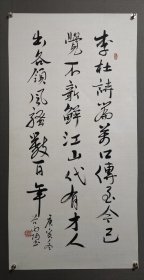 李杜詩篇萬口傳至今已
覺不新鮮江山代有才人
出各領風騷數百年
庚寅冬